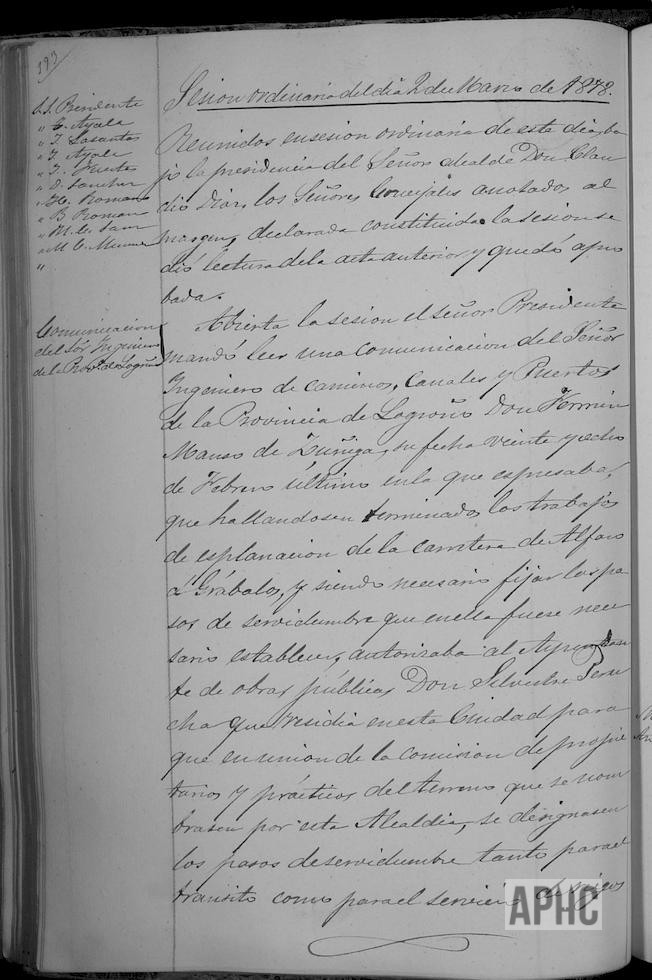 193
S.S. Presidente
" C. Ayala
" T. Lasantas
" T. Ayala
" T. Fuertes
" D. Sanchez
" H. Romano
" B Roman
" M. C. Sanz
" M. C.
"
Comunicacion
del Sor Ingeniero
de la Prov.ª de Logroño
Sesion ordinaria del dia 2 de Marzo de 1878.
Reunidos en sesion ordinaria de este dia, ba
jo la presidencia del Señor Alcalde Don Clau
dio Diaz, los Señores Concejales anotados al
margen, declarada constituida la sesion se
dió lectura de la acta anterior y quedó apro
bada.
Abierta la sesion el señor Presidente
mandó leer una comunicacion del Señor
Ingeniero de caminos, Canales y Puertos
de la Provincia de Logroño Don Fermin
Manso de Zuñiga, su fecha veinte y ocho
de Febrero último en la que espresaba,
que hallandosen terminados los trabajos
de esplanacion de la carretera de Alfaro
á Grábalos, y siendo necesario fijar los pa
sos de servidumbre que en ella fuese nece
sario establecer, autorizaba al Ayudan
te de obras públicas Don Silvestre
cha que residia en esta Ciudad para
que en union de la comision de propie
tarios y prácticos del terreno que se nom
brasen por esta Alcaldia, se designasen
los pasos de servidumbre tanto para el
transito como para el servicio de riegos
APHC